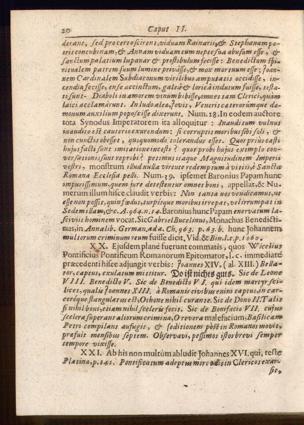 20 Caput II.
derant, sed pro certo scirent, viduam Rainerii, & Stephanam pa-
tris concubinam, & Annam viduam cum nepte sua abusum esse, &
sanctum palatium lupanar & prostibulum fecisse: Benedictum spi-
ritualem patrem suum lumine privasse, & mox mortuum esse; Joan-
nem Cardinalem Subdiaconum virilibus amputatis occidisse, in-
cendia fecisse, ense accinctum, galea & lorica indutum fuisse, testa-
ti sunt: Diaboli in amorem vinum bibisse, omnes tam Clerici, quam
laici acclamarunt. In ludo aleæ, Jovis, Veneris cæterorumque dæ-
monum auxilium poposcisse dixerunt. Num. 18. In eodem auctore
tota Synodus Imperatorem ita alloquitur: Inauditum vulnus
inaudito est cauterio exurendum: si corruptis moribus sibi soli, &
non cunctis obesset, quoquomodo tolerandus esset. Quot prius casti
hujus facti sunt imitatione incesti? quot probi hujus exemplo con-
versationis sunt reprobi? petimus itaque Magnitudinem Imperii
vestri, monstrum illud nulla virtute redemptum a vitiis à Sancta
Romana Ecclesia pelli. Num. 19. ipsemet Baronius Papam hunc
impiissimum, quem jure detestentur omnes boni, appellat. & Nu-
merum illum hisce claudit verbis:
esse non possit, quin fœdus, turpisque moribus irrepat, velut rumpat in
Sede missam, &c. A. 964. n. 14. Baronius hunc Papam enervatum la-
scivis hominem vocat. Sic Hartvvi Bucelinus, Monachus Benedicti-
nus, in Annalib. German. ada. Ch. 963. p. 63. b. hunc Johannem
multorum criminum reum fuisse dicit,
XX. Ejusdem planè fuerunt commatis, quos Wicelius
Pontificius Pontificum Romanorum Epitomator, l. c. immediatè
præcedenti hisce adjungit verbis: Joannes XIV. (al. XIII.)
captus, exulatum mittitur. Do ist nichts guts. Sic de Leone
VIII. Benedicto V. Sic de Benedicto VI. qui idem mæror sce-
leris, qualis Joannes XIII. à Romanis civibus enim captus, in car-
cereque strangulatus est, Othone nihil curante. Sic de Dino II. Tale
si nihil boni, etiam nihil sceleris fecit. Sic de Bonifacio VII. cujus
scelera superant aliorum crimina. O revera malefacium; Basilicam
Petri compilans aufugit, & seditionem post in Romanis movit,
prasulis manibus septem. Observasti, pessimos istos brevi semper
tempore vixisse.
XXI. Ab his non multùm abludit Johannes XVI. qui, teste
Platina, p. 141. Pontificatum adeptus mirò odio in Clericos exar-
sit,